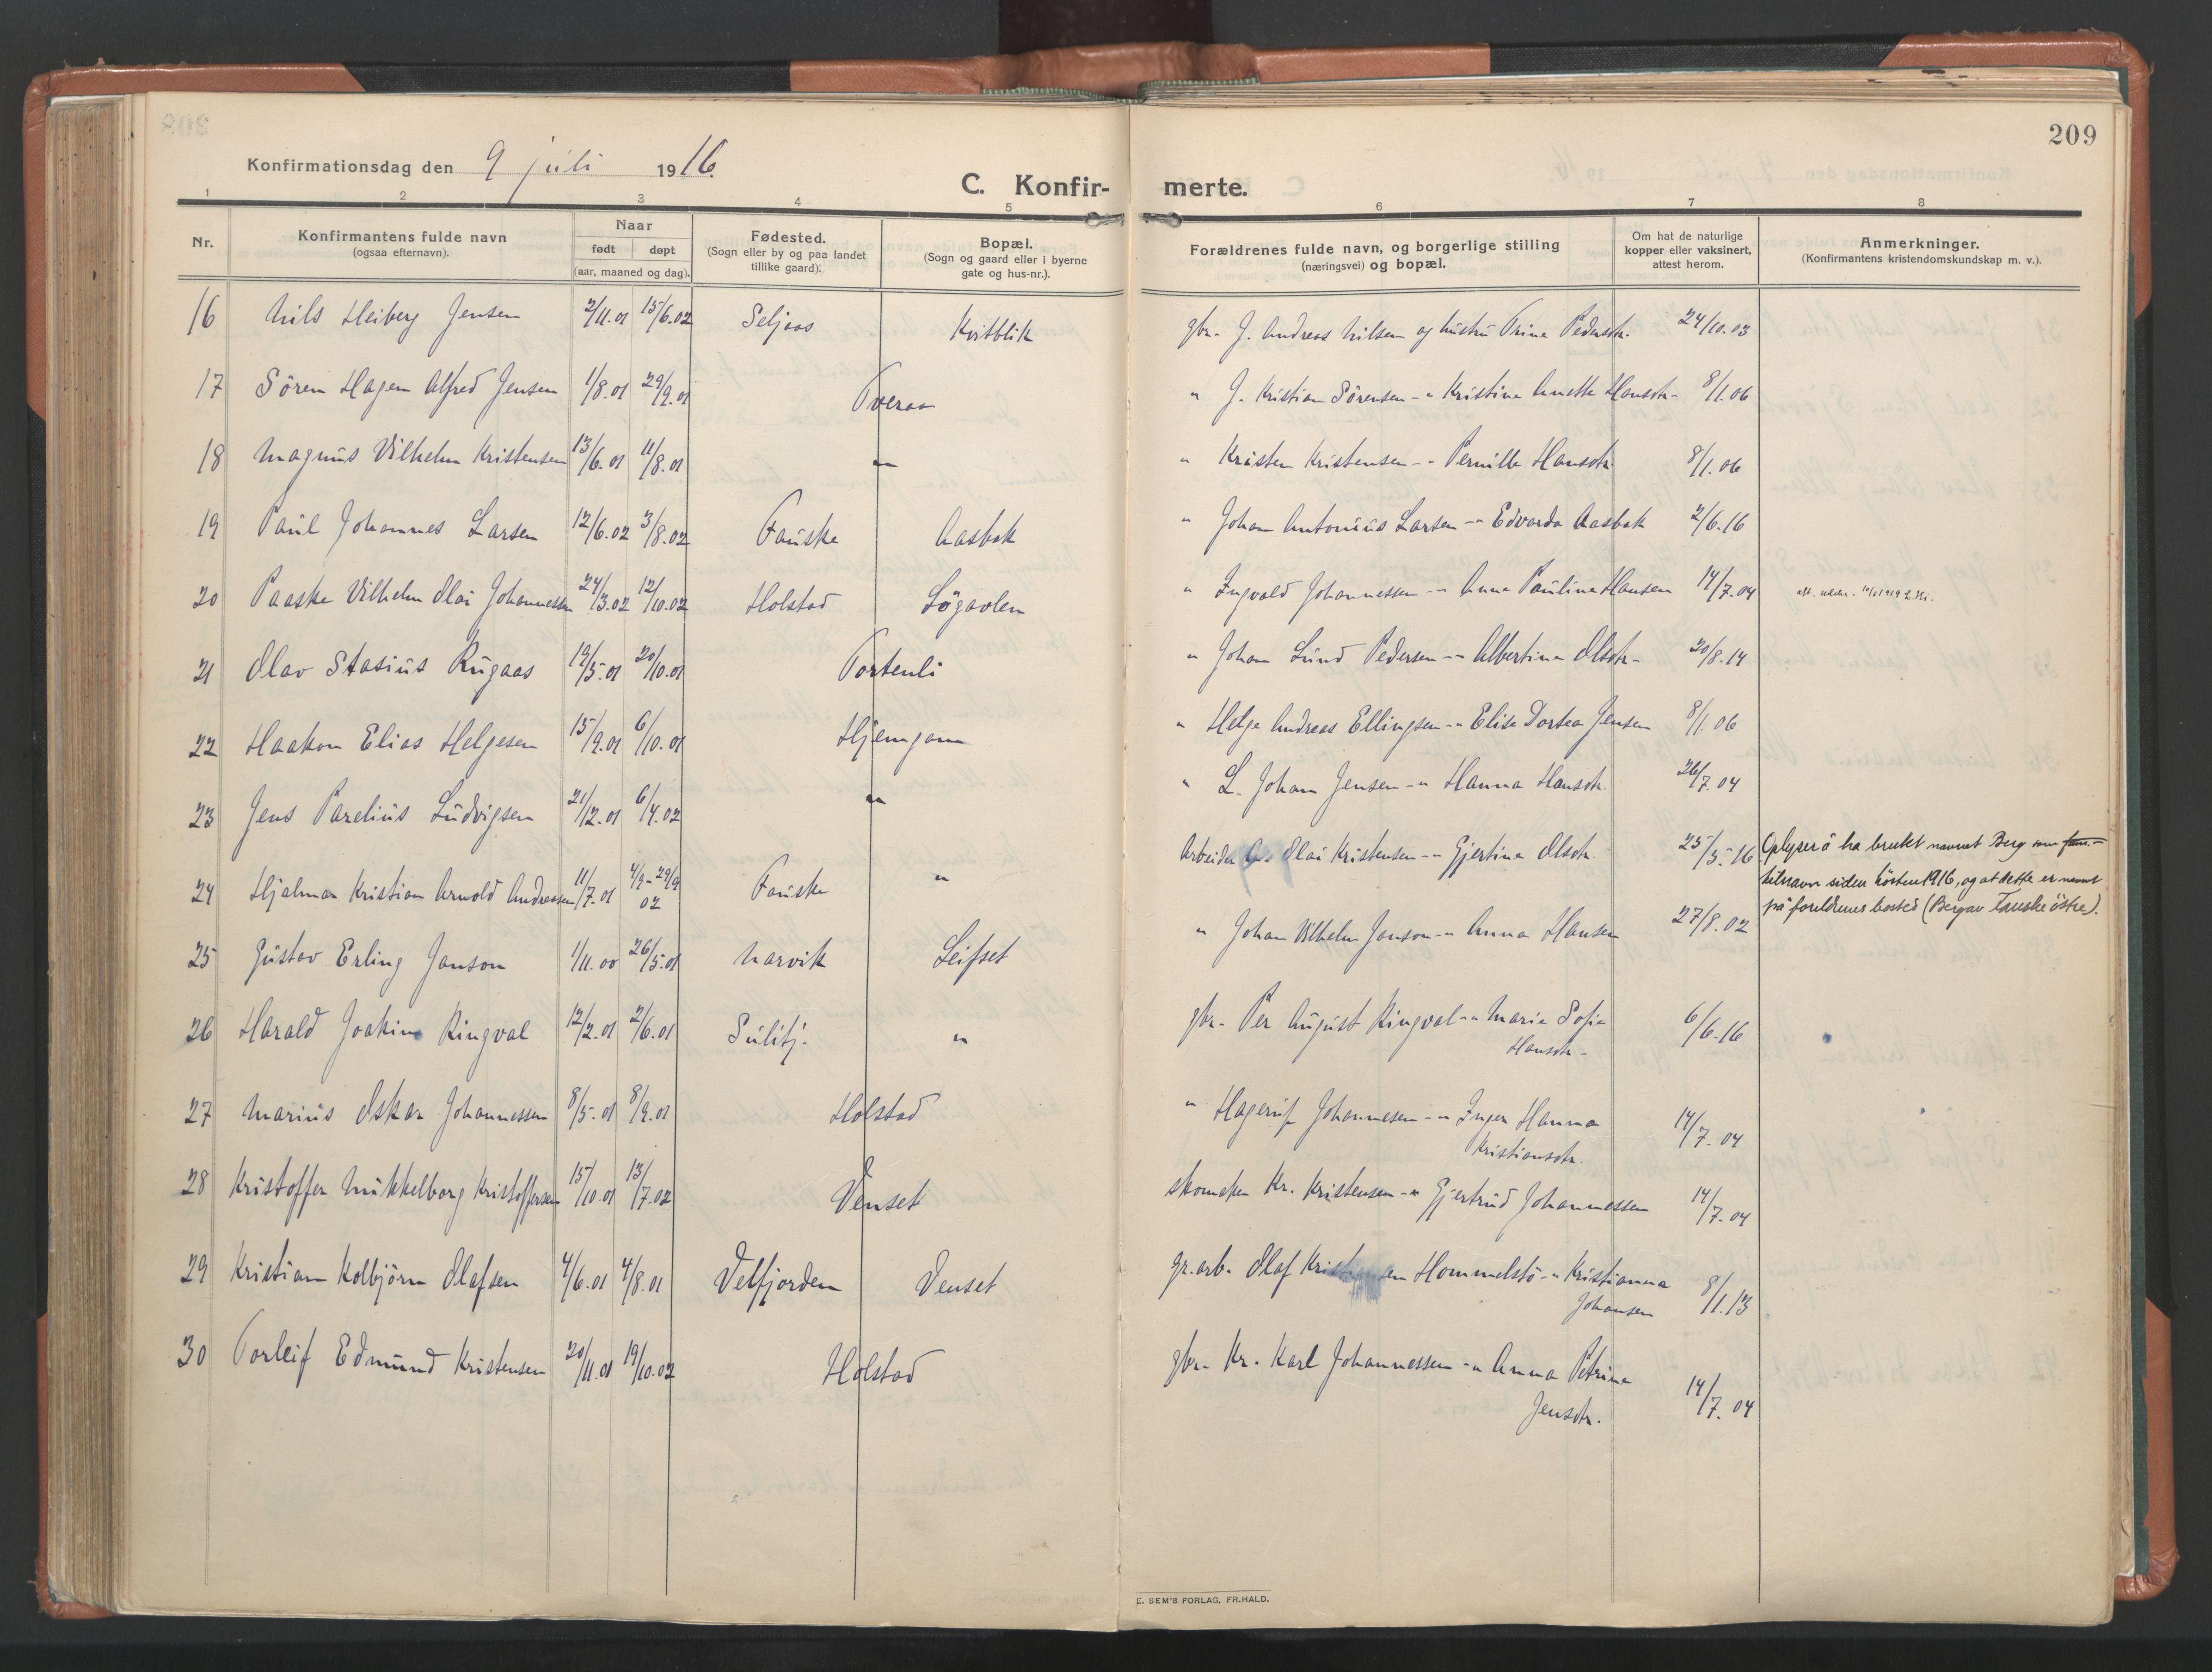 209
Konfirmationsdag den 9 juli 1916.
C. Konfir- merte.
1 2 3 4 5 6 7 8
Nr.
Konfirmantens fulde navn
(ogsaa efternavn).
Naar
født døpt
(aar, maaned og dag).
Fødested.
(Sogn eller by og paa landet
tillike gaard).
Bopæl.
(Sogn og gaard eller i byerne
gate og hus-nr.).
Forældrenes fulde navn, og borgerlige stilling
(næringsvei) og bopæl.
Om hat de naturlige
kopper eller vaksinert,
attest herom.
Anmerkninger.
(Konfirmantens kristendomskundskap m. v.).
16 Nils Heiberg Jensen 2/11.01 15/6.02 Seljaas Kvitblik gbr. J. Andreas Nilsen og hustru Trine Pedersdtr. 24/10.03
17 Sören Hagen Alfred Jensen 1/8.01 29/9.01 Tveraa " J. Kristian Sörensen -"- Kristine Anette Hansdtr. 8/1.06
18 Magnus Vilhelm Kristensen 13/6.01 11/8.01 " " Kristen Kristensen -"- Pernille Hansdtr. 8/1.06
19 Paul Johannes Larsen 12/6.02 3/8.02 Fauske Aasbak " Johan Antonius Larsen -"- Edvarda Aasbak 2/6.16
20 Paaske Vilhelm Olai Johannessen 24/3.02 12/10.02 Holstad Lögavlen " Ingvald Johannessen -"- Anna Pauline Hansen 14/7.04
21 Olav Stasius Rugaas 19/5.01 20/10.01 Tortenli " Johan Lund Pedersen -"- Albertine Olsdtr. 20/8.14
22 Haakon Elias Helgesen 15/9.01 6/10.01 Hjemgam " Helge Andreas Ellingsen -"- Elise Dortea Jensen 8/1.06
23 Jens Parelius Ludvigsen 21/12.01 6/4.02 " " L. Johan Jensen -"- Hanna Hansdtr. 26/7.04
24 Hjalmar Kristian Arnold Andreassen 11/7.01 4/9-29/9 02 Fauske " Arbeider Olai Kristensen -"- Gjertine Olsdtr. 25/5.16 Oplyser å ha brukt navnet Berg som fam.-
tilnavn siden hösten 1916, og at dette er navnet
på foreldrenes bosted (Berg av Fauske östre).
25 Gustav Erling Janson 1/11.00 26/5.01 Narvik Leifset " Johan Vilhelm Janson -"- Anna Hansen 27/8.02
26 Harald Joakim Ringval 12/2.01 2/6.01 Sulitj. " gbr. Per August Ringval -"- Marie Sofie
Hansdtr. 6/6.16
27 Marius Oskar Johannessen 8/5.01 8/9.01 Holstad " Hagerup Johannesen -"- Inger Hanna
Kristiansdtr. 14/7.04
28 Kristoffer Mikkelborg Kristoffersen 15/10.01 13/7.02 Venset skomaker Kr. Kristensen -"- Gjertrud Johannessen 14/7.04
29 Kristian Kolbjörn Olafsen 4/6.01 4/8.01 Velfjorden Venset gr.arb. Olaf Hommelstö -"- Kristianna
Johansen 8/1.13
30 Torleif Edmund Kristensen 20/11.01 19/10.02 Holstad gbr. Kr. Karl Johannessen -"- Anna Petrine
Jensdtr. 14/7.04
E. SEM'S FORLAG, FR.HALD.